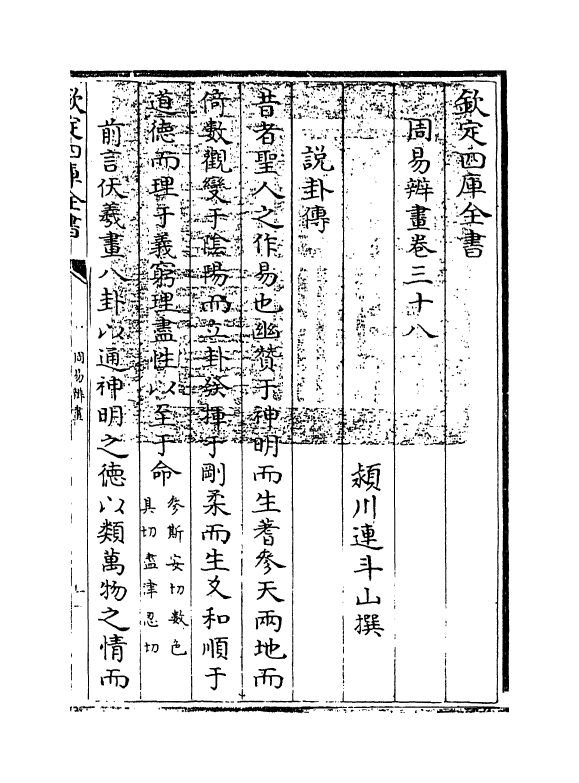 欽定四庫全書
周易辯畫卷三十八
潁川連斗山撰
說卦傳
昔者聖人之作易也幽贊于神明而生蓍參天兩地而
倚數觀變于陰陽而立卦發揮于剛柔而生爻和順于
道德而理于義窮理盡性以至于命參斯安切數色
具切盡津忍切
前言伏羲畫八卦以通神明之德以類萬物之情而
欽定四庫全書
周易辯畫
一